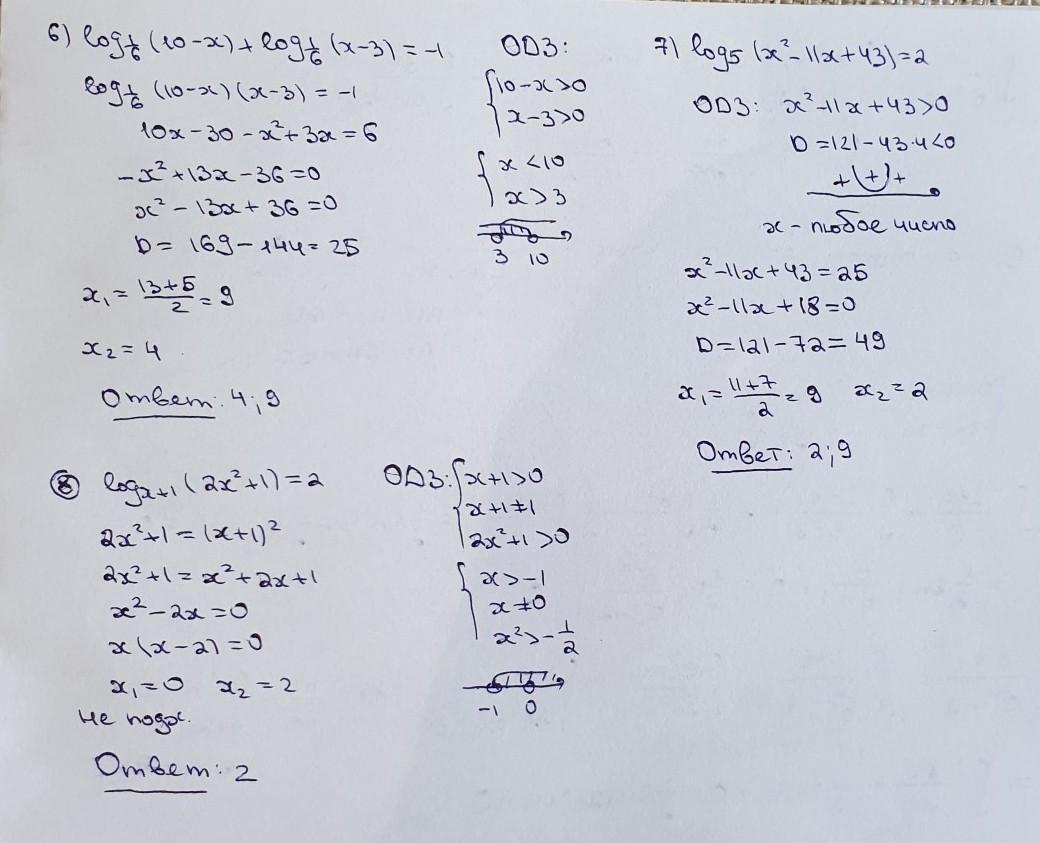 6) log_{1/6} (10-x) + log_{1/6} (x-3) = -1
log_{1/6} (10-x) (x-3) = -1
10x - 30 - x² + 3x = 6
-x² + 13x - 36 = 0
x² - 13x + 36 = 0
D = 169 - 144 = 25
x₁ = (13+5)/2 = 9
x₂ = 4
Ответ: 4; 9
ОДЗ:
{10-x>0
x-3>0
{x<10
x>3
3 10
7) log₅ (x² - 11x + 43) = 2
ОДЗ: x² - 11x + 43 > 0
D = 121 - 43·4 < 0
+ + +
x - любое число
x² - 11x + 43 = 25
x² - 11x + 18 = 0
D = 121 - 72 = 49
x₁ = (11+7)/2 = 9 x₂ = 2
Ответ: 2; 9
8) log_{x+1} (2x²+1) = 2
2x² + 1 = (x+1)²
2x² + 1 = x² + 2x + 1
x² - 2x = 0
x (x-2) = 0
x₁ = 0 x₂ = 2
не подх.
Ответ: 2
ОДЗ: {x+1>0
x+1≠1
2x²+1>0
{x>-1
x≠0
x²>-1/2
-1 0